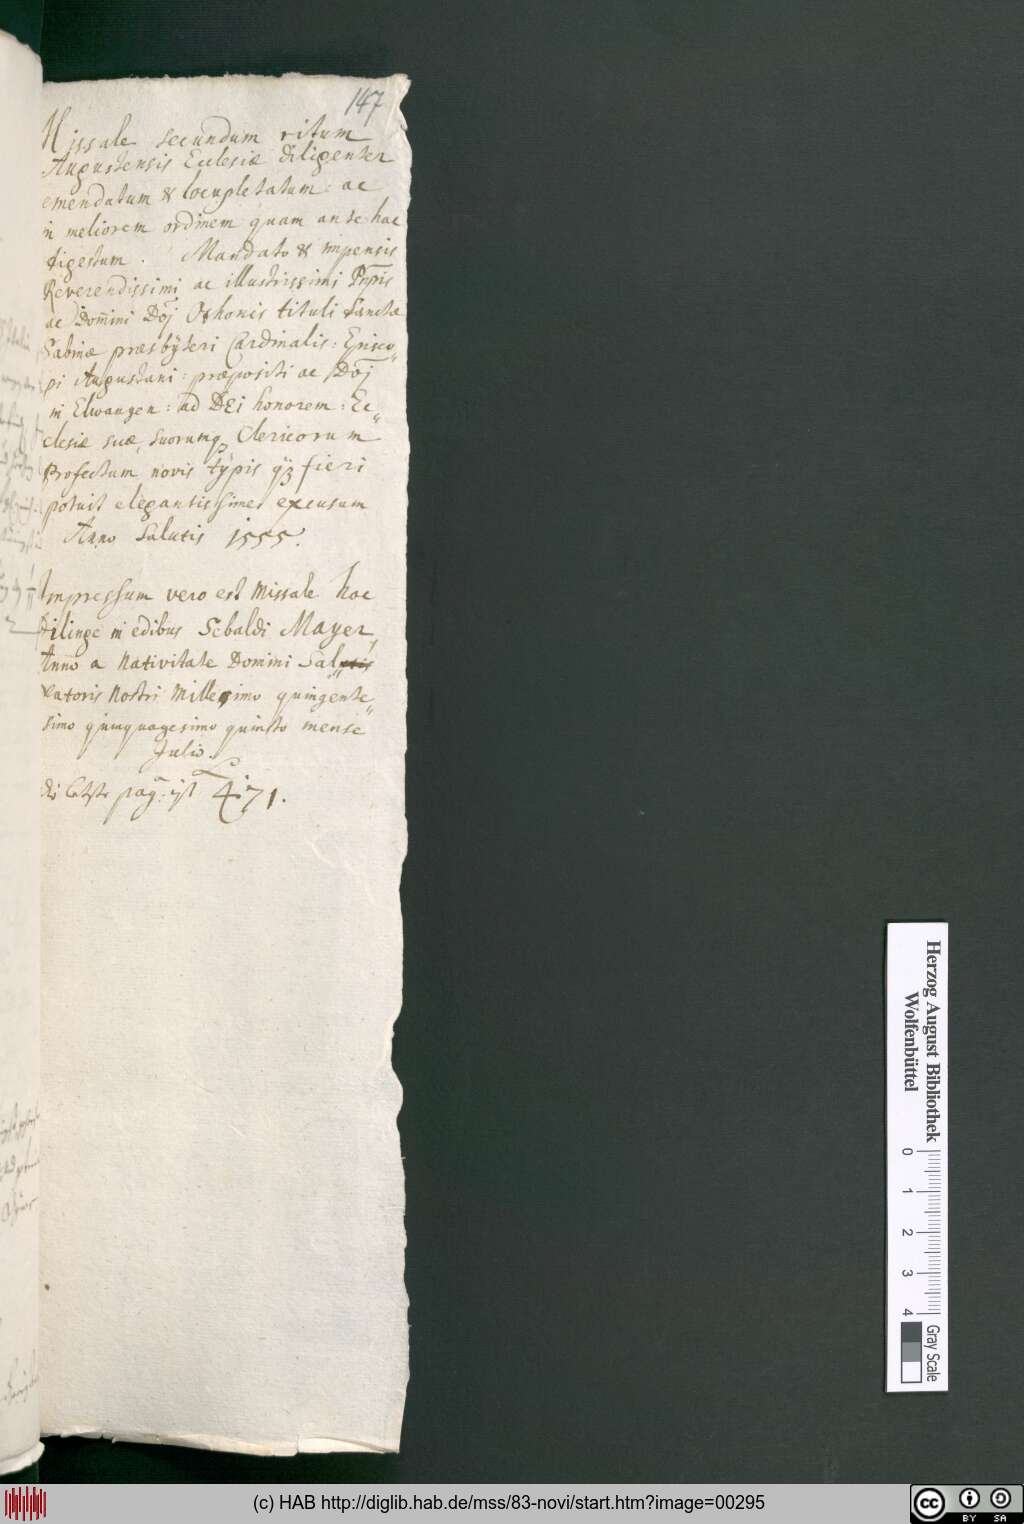 147
Missale secundum ritum
Augustensis Ecclesiæ diligenter
emendatum & locupletatum: ac
in meliorem ordinem quam ante hac
digestum. Mandato & impensis
Reverendissimi ac illustrissimi Prῖpis
ac Dom̄ini Don̄j Othonis tituli Sanctæ
Sabinæ præsbÿteri Cardinalis: Episco„
pi Augustani: præpositi ac Don̄j
in Elwangen: ad DEi honorem: Ec„
clesiæ suæ, suorumq₃ Clericorum
Profectum novis tÿpis qÿ₃ fieri
potuit elegantissimes excusum
Anno Salutis 1555.
Impressum vero est Missale hoc
Dilinge in edibus Sebaldi Mayer,
Anno a Nativitate Domini Salutis
vatoris Nostri Millesimo quingente„
simo quinquagesimo quinto mense
Julio.
pag: ist 471.
Herzog August Bibliothek
Wolfenbüttel
0 1 2 3 4
Gray Scale
(c) HAB http://diglib.hab.de/mss/83-novi/start.htm?image=00295
cc BY SA